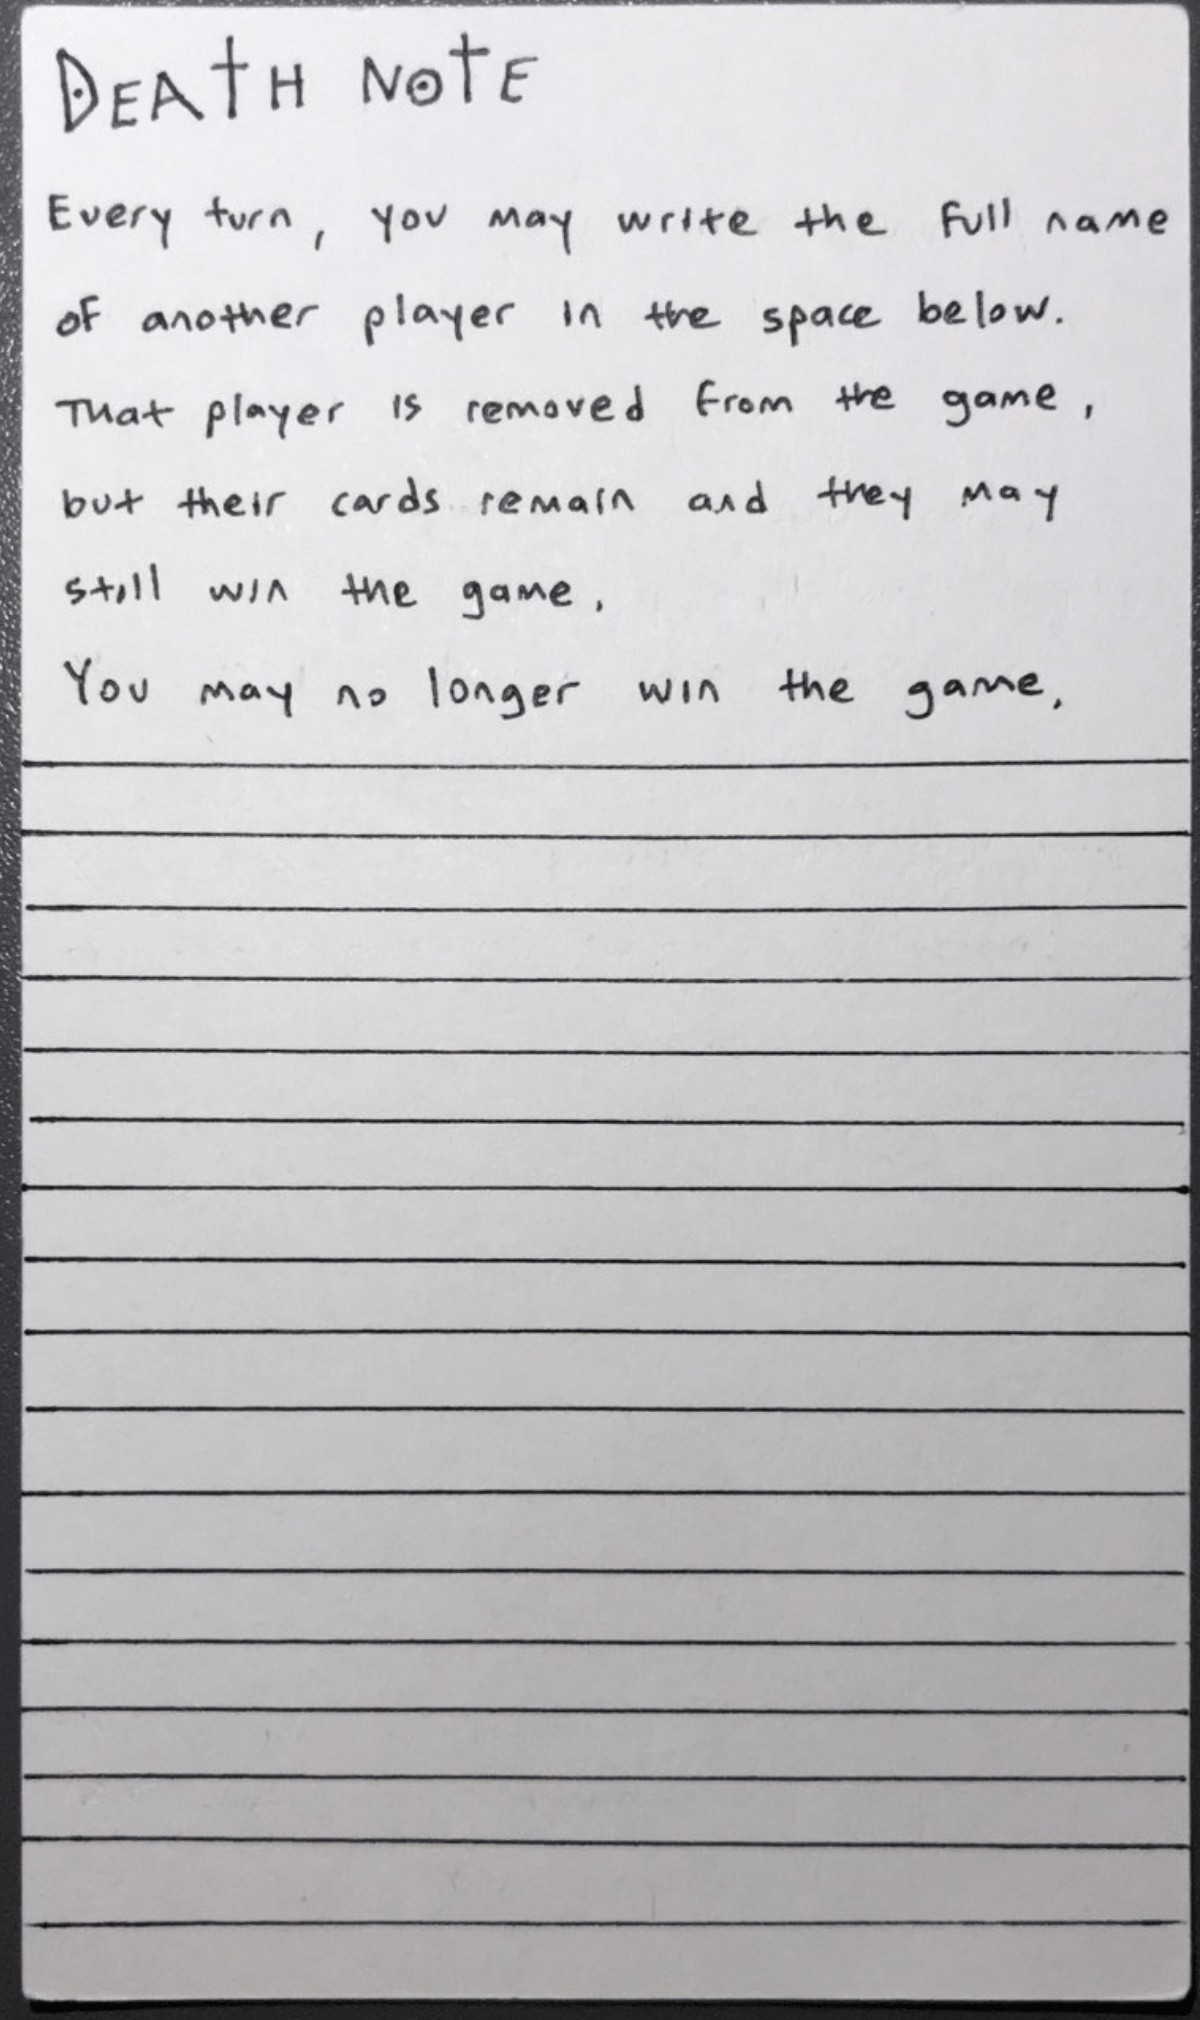 DEATH NOTE
Every turn, you may write the full name
of another player in the space below.
That player is removed from the game,
but their cards remain and they may
still win the game.
You may no longer win the game.